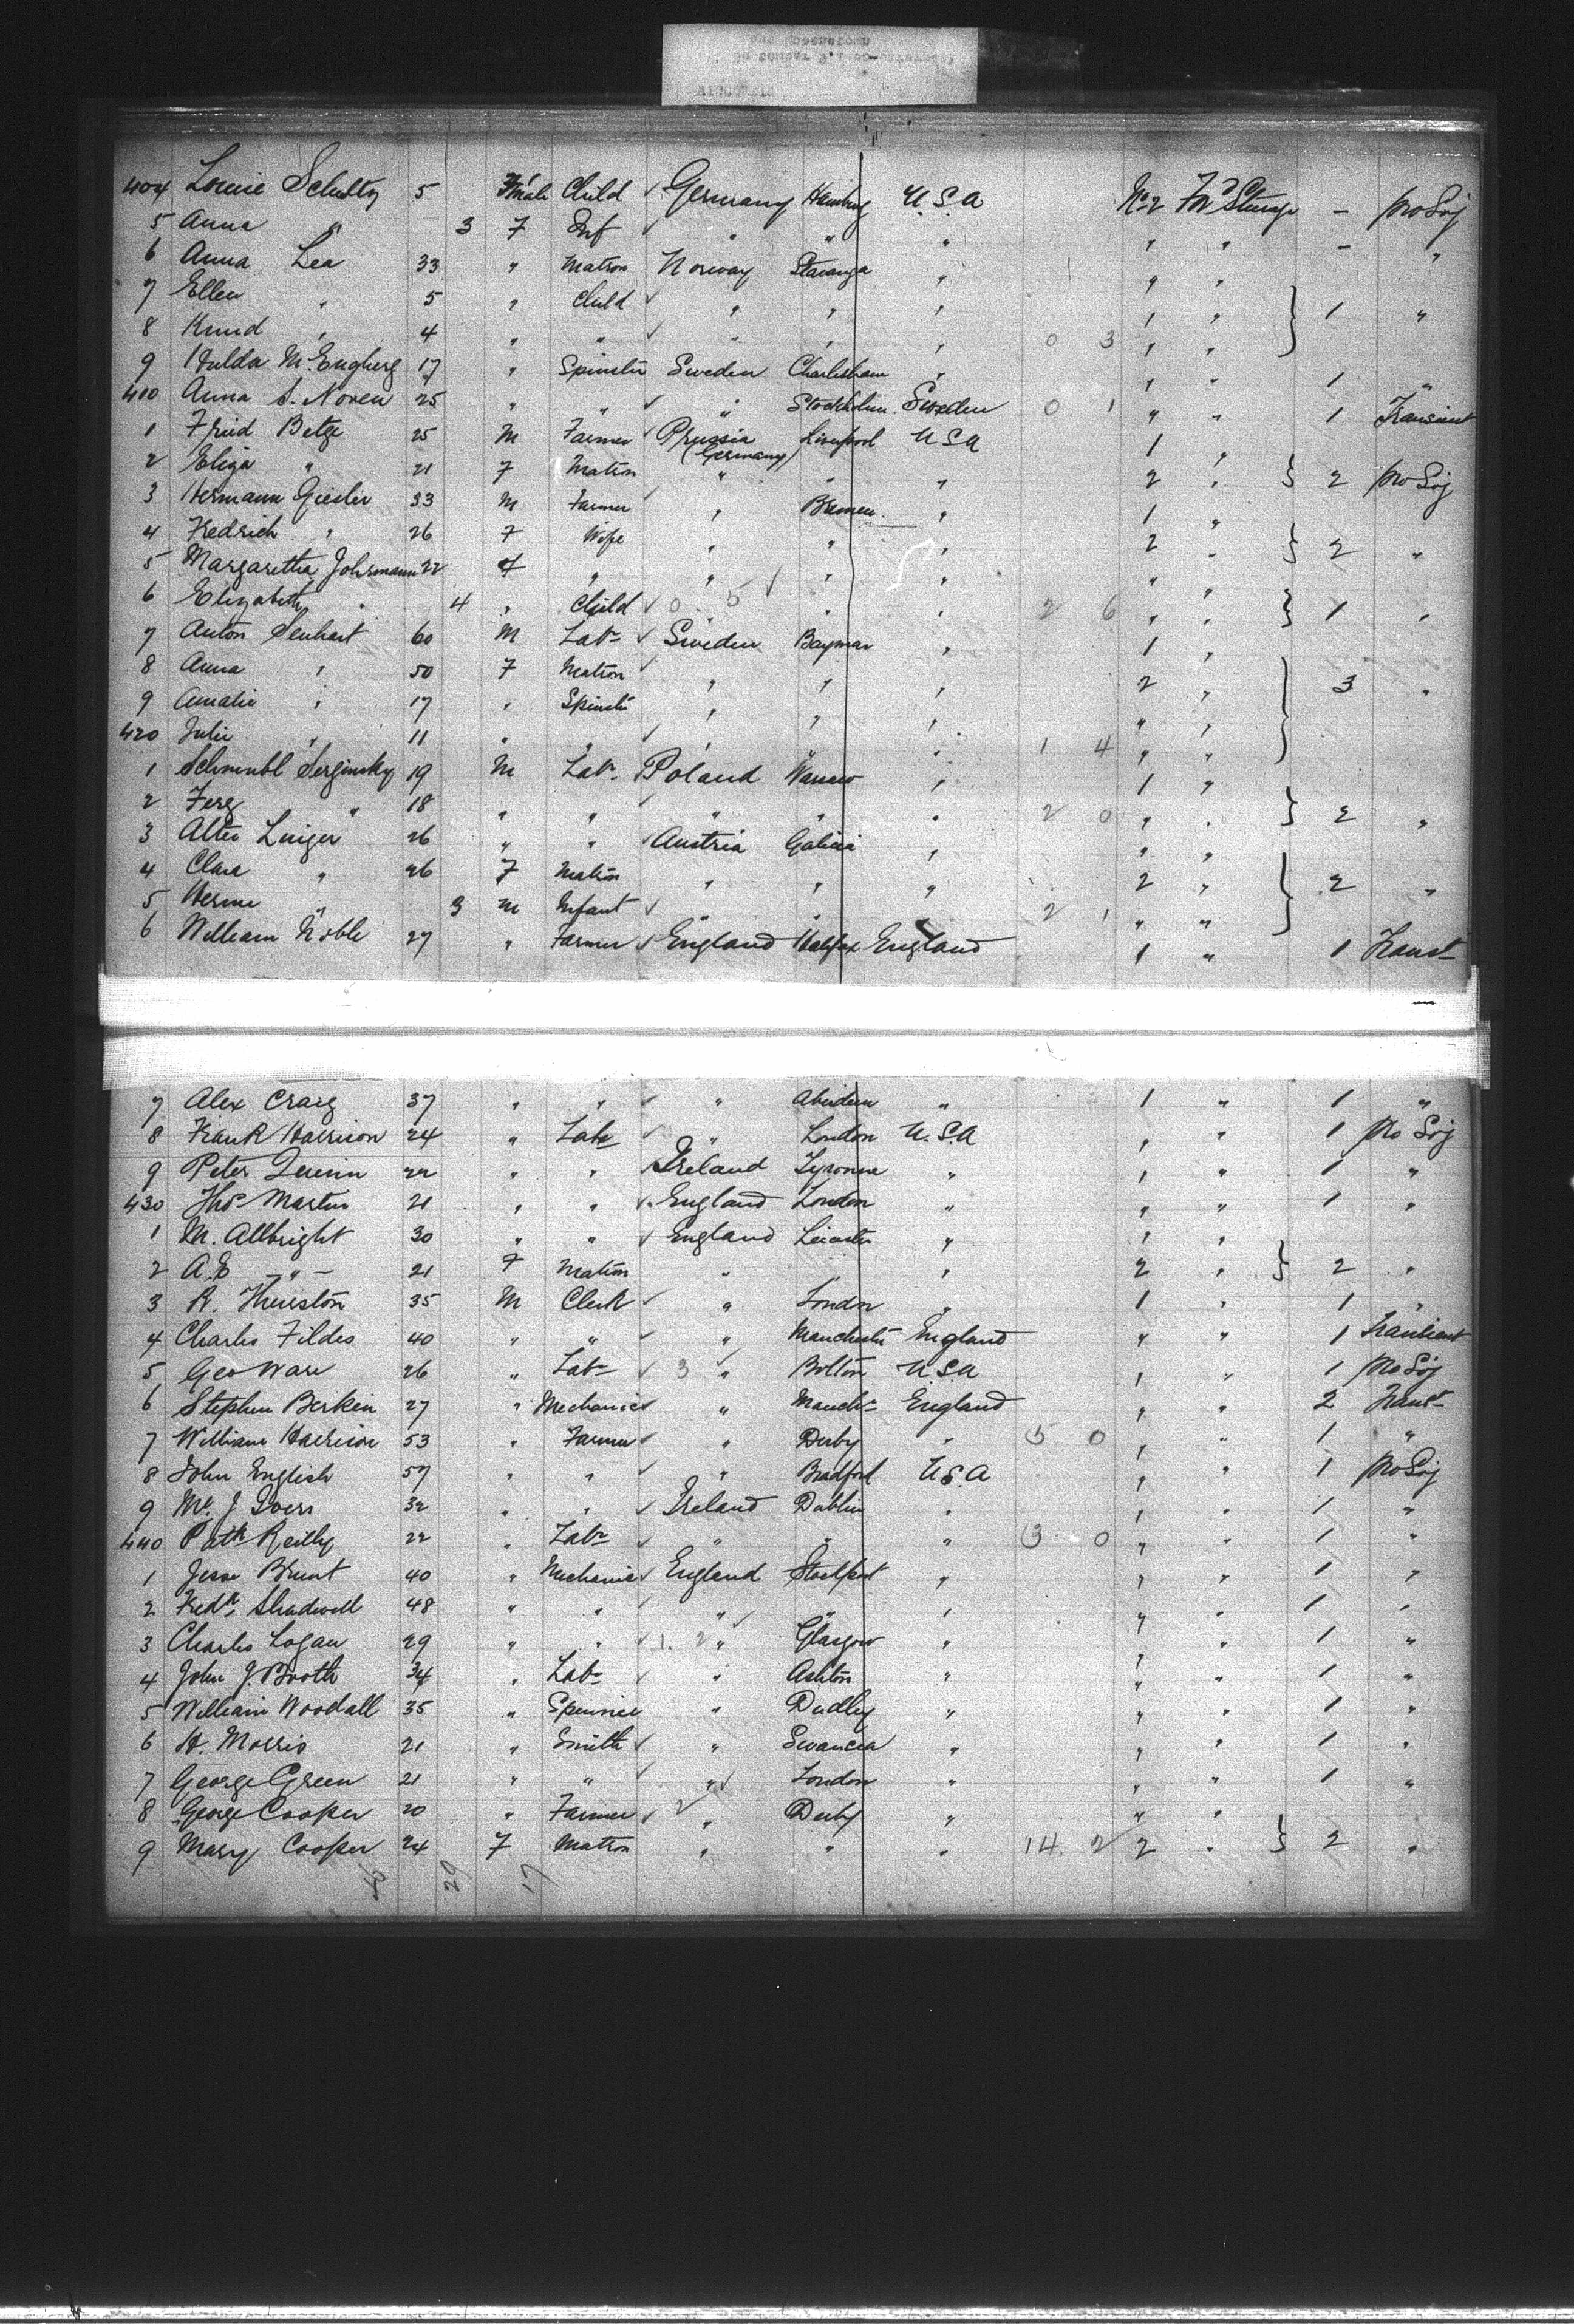 404 Louise Schultz 5 Female Child ✓ Germany Hamburg U.S.A No 2 Fwd Steerage – pro Soj
5 Anna " 3 F Inf " " " " " – "
6 Anna Lea 33 " Matron Norway Stavanga " 1 " "
7 Ellen " 5 " Child ✓ " " " " " } 1 "
8 Knud " 4 " " ✓ " " " 0 3 " "
9 Hulda M. Engberg 17 " Spinster Sweden " " " 1 "
410 Anna S. Noren 25 " " ✓ " Stockholm Sweden 0 1 " " 1 Transient
1 Fried Betge 25 M Farmer ✓ Prussia (Germany) Liverpool USA 1 "
2 Eliza " 21 F Matron " " " 2 " } 2 pro Soj
3 Hermann Giesler 33 M Farmer ✓ " Bremen " 1 "
4 Fredrich " 26 F Wife " " " 2 " } 2 "
5 Margaretha Johrmann 22 F " " ✓ " " " "
6 Elizabeth " 4 " Child ✓ 0 5 " " 2 6 " " } 1 "
7 Anton 60 M Labr ✓ Sweden " 1 "
8 Anna " 50 F Matron ✓ " " " 2 " } 3 "
9 Amalie " 17 " Spinstr " " " " "
420 Julie " 11 " " ✓ " " " 1 4 " "
1 19 M Labr Poland Warsaw " 1 "
2 " 18 " " ✓ " " " 2 0 " " } 2 "
3 Alter 26 " " ✓ Austria Galicia " " "
4 Clara " 26 F Matron " " " 2 " } 2 "
5 " 3 M Infant ✓ " " 2 1 " "
6 William Noble 27 " Farmer ✓ England Halifax England 1 " 1 Transt
7 Alex Craig 37 " " ✓ " Aberdeen " 1 " 1 "
8 Frank Harrison 24 " Labr ✓ " London U.S.A " " 1 pro Soj
9 Peter Quinn 22 " " ✓ Ireland Tyrone " " " 1 "
430 Thos Martin 21 " " ✓ England London " " " 1 "
1 M. Allbright 30 " " ✓ England Leicester " " "
2 A.E – " – 21 F Matron " " " 2 " } 2 "
3 R. Thurston 35 M Clerk ✓ " London " 1 " 1 "
4 Charles Fildes 40 " " ✓ " Manchester England " " 1 Transient
5 Geo Ware 26 " Labr ✓ 3 " Bolton USA " " 1 pro Soj
6 Stephen Berkin 27 " Mechanic ✓ " Manchr England " " 2 Transt
7 William Harrison 53 " Farmer ✓ " Derby " 5 0 " " 1 "
8 John English 57 " " ✓ " Bradford U.S.A " " 1 pro Soj
9 J. Ivers 32 " " ✓ Ireland Dublin " " " 1 "
440 Patk Reilly 22 " Labr ✓ " " " 3 0 " " 1 "
1 Jesse Brunt 40 " Mechanic ✓ England Stockport " " " 1 "
2 Fredk Shadwell 48 " " ✓ " " " " " 1 "
3 Charles Logan 29 " " ✓ 1. 2 " Glasgow " " " 1 "
4 John J. Booth 34 " Labr ✓ " Ashton " " " 1 "
5 William Woodall 35 " Spinner " Dudley " " " 1 "
6 H. Morris 21 " Smith ✓ " Swancea " " " 1 "
7 George Green 21 " " " ✓ London " " " 1 "
8 George Cooper 20 " Farmer ✓ 2 " Derby " " "
9 Mary Cooper 24 F Matron " " " 14. 2 2 " } 2 "
29 17